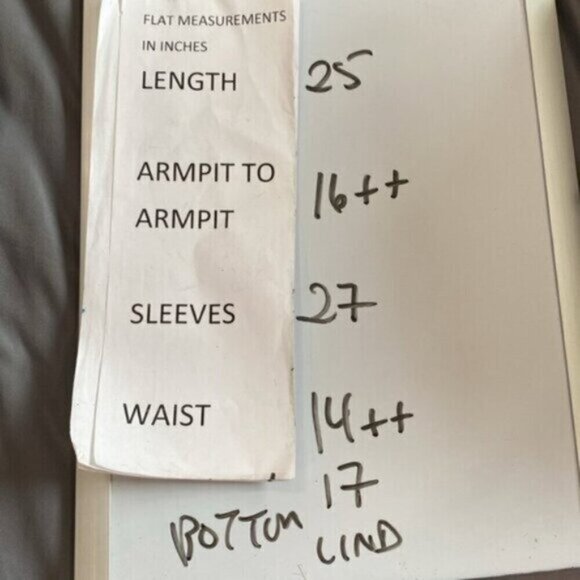 FLAT MEASUREMENTS
IN INCHES
LENGTH 25
ARMPIT TO
ARMPIT 16++
SLEEVES 27
WAIST 14++
17
BOTTOM
LIND